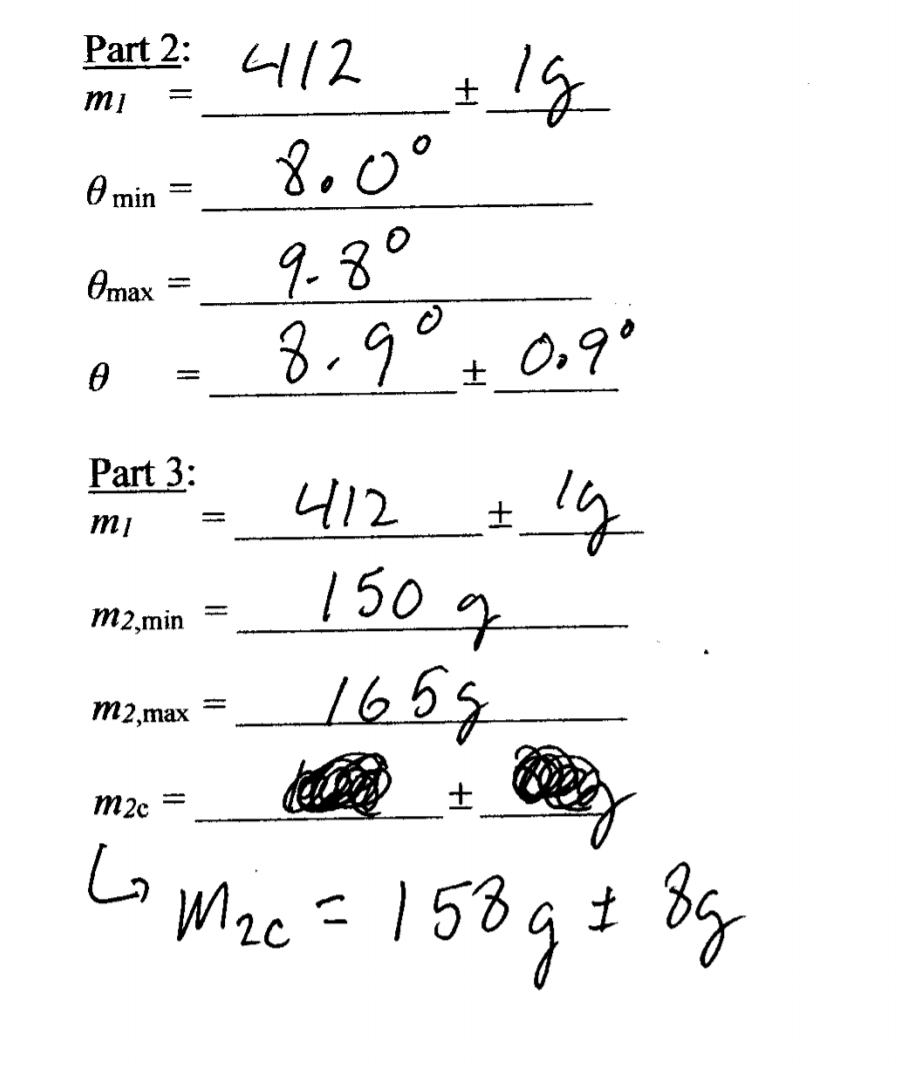 Part 2:
m1 = 412 ± 1g
θ min = 8.0°
θmax = 9.8°
θ = 8.9° ± 0.9°
Part 3:
m1 = 412 ± 1g
m2,min = 150 g
m2,max = 165g
m2c = ±  g
↳ m2c = 158g ± 8g